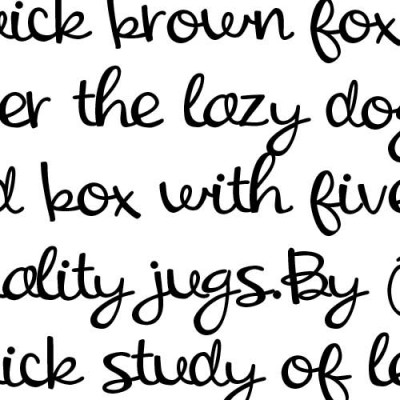 uick brown fox
er the lazy dog
d box with five
ality jugs.By
ick study of le